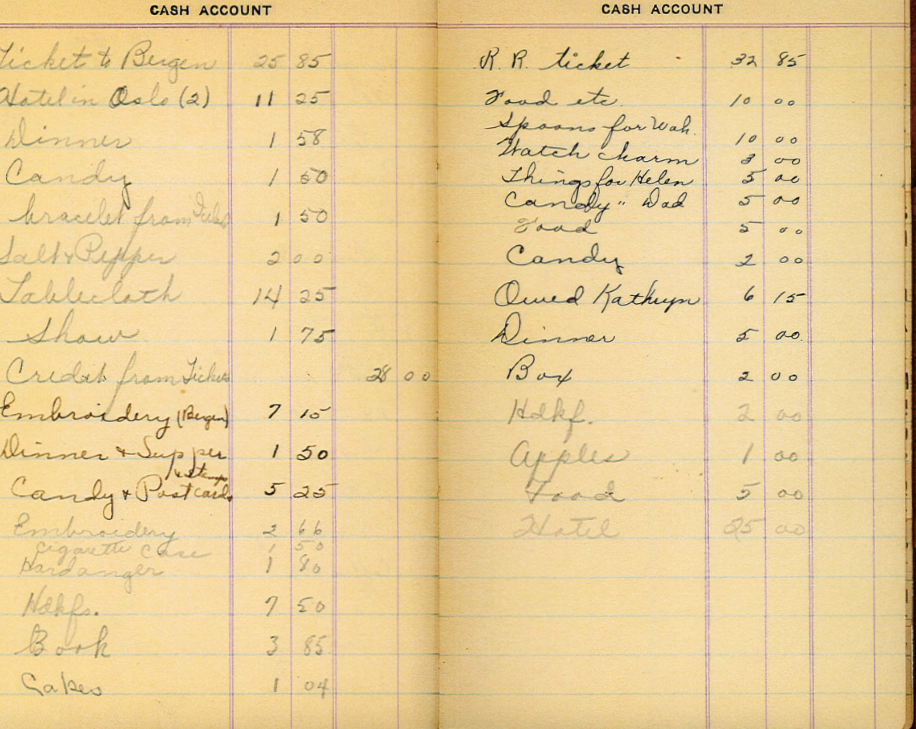 CASH ACCOUNT
Ticket to Bergen 25 85
Hotel in Oslo (2) 11 25
Dinner 1 58
Candy 1 50
bracelet from 1 50
Salt & Pepper 2 00
Tablecloth 14 25
Show 1 75
Credit from 28 00
Embroidery (Bergen) 7 15
Dinner & Supper 1 50
& stamps
Candy & Postcards 5 25
Embroidery 2 66
Cigarette Case 1 50
Hardanger 1 80
Hdkfs. 7 50
Book 3 85
Cakes 1 04
CASH ACCOUNT
R. R. ticket 32 85
Food etc. 10 00
Spoons for 10 00
Watch charm 3 00
Things for Helen 5 00
Candy " Dad 5 00
Food 5 00
Candy 2 00
Owed Kathryn 6 15
Dinner 5 00
Box 2 00
Hdkf. 2 00
Apples 1 00
Food 5 00
Hotel 00